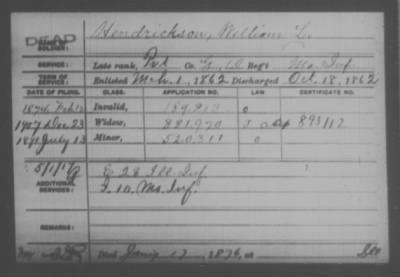 DEAD
NAME OF SOLDIER: Hendrickson, William L.
SERVICE: Late rank, Pvt Co. G, 10 Reg't Mo. Inf.
TERM OF SERVICE: Enlisted Mch. 1, 1862 Discharged Oct. 18, 1862
DATE OF FILING. CLASS. APPLICATION NO. LAW. CERTIFICATE NO.
1874 Feb Invalid, 189.813 o
1907 Dec 23 Widow, 881.970 893112
1891 July 13 Minor, 520.311 o
5/1/17
ADDITIONAL SERVICES: E 28 Ill. Inf.
10. Mo. Inf.
REMARKS:
Died 17, 1876, at Ill